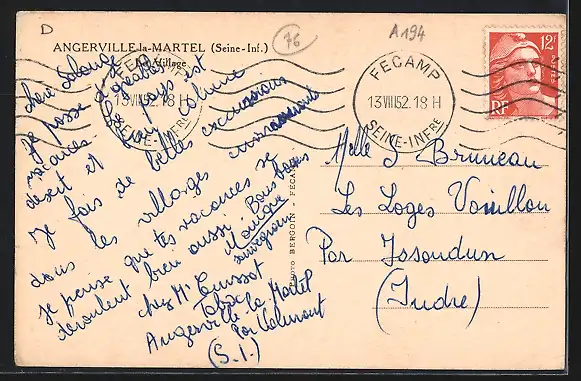 D
76
A194
ANGERVILLE-la-MARTEL (Seine-Inf.)
Le Village
FECAMP
13 VIII 52. 18 H
SEINE-INFRE
FECAMP
13 VIII 52. 18 H
SEINE-INFRE
12F
POSTES
RF
Chère Solange
Je passe d'agréables
vacances. Le pays est
désert et bien calme
je fais de belles excursions
dans les villages environnants
je pense que tes vacances se
déroulent bien aussi. Bons baisers
Monique
chez Mr
Tabac
Angerville-la-Martel
par Valmont
(S.I.)
PHOTO BERGOIN - FÉCAMP
Melle S Bruneau
Les Loges Vouillon
Par Issoudun
(Indre)